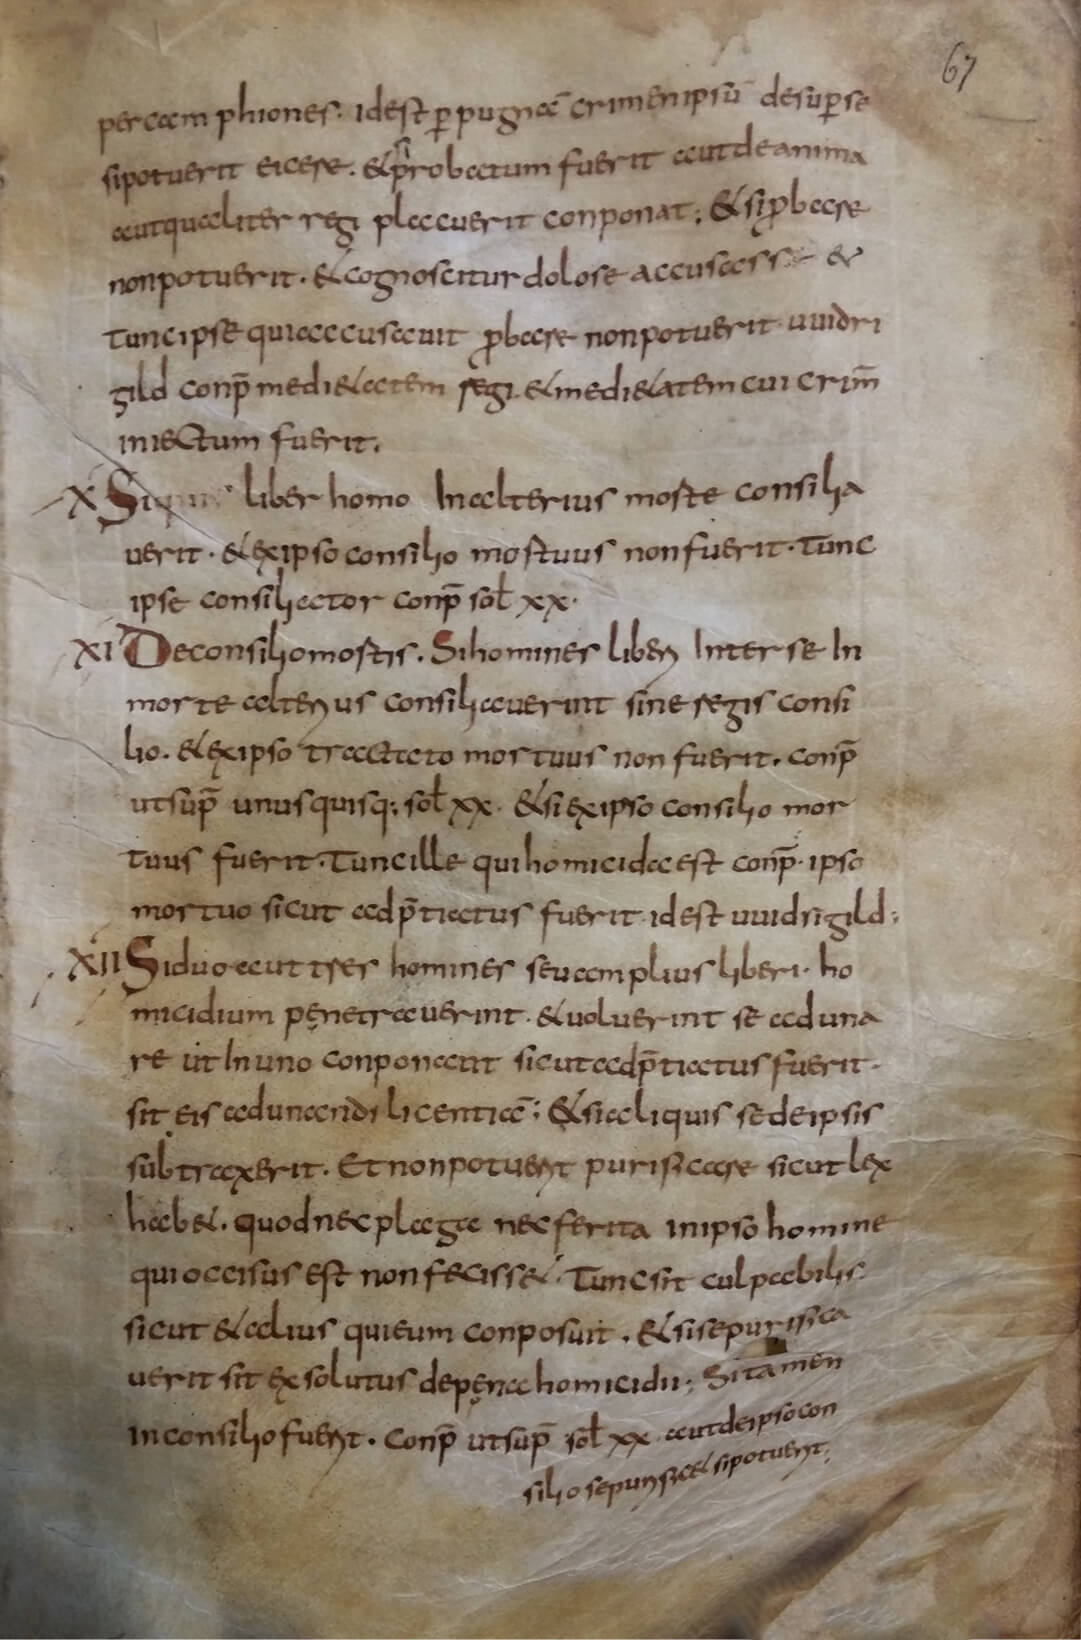 67
per camphiones. idest p̱ pugnā crimen ipsū desup̱ se
sipotuerit eicere. & si probatum fuerit aut de anima
aut qualiter regi placuerit conponat; & si ꝓbare
non potuerit. & cognoscitur dolose accusasse &
tunc ipse qui accusauit ꝓbare non potuerit uuidri
gild conp̄ medi&atem regi. & medi&atem cui crim̄
iniectum fuerit.
X Siquis liber homo In alterius morte consilia
uerit. & ex ipso consilio mortuus non fuerit. tunc
ipse consiliator conp̄ sol̄ xx.
XI De consilio mortis. Si homines liberi Inter se In
morte alterius consiliauerint sine regis consi
lio. & ex ipso tractato mortuus non fuerit. conp̄
ut sup̄ unusquisq; sol̄ xx. & si ex ipso consilio mor
tuus fuerit. tunc ille qui homicida est conp̄. ipso
mortuo sicut adp̄tiatus fuerit idest uuidrigild;
XII Si duo aut tres homines seu amplius liberi. ho
micidium penetrauerint. & uoluerint se aduna
re ut In uno conponant sicut adp̄tiatus fuerit.
sit eis adunandi licentiā; & si aliquis se de ipsis
subtraxerit. Et non potuerit purificare sicut lex
hab&. quod nec plaga nec ferita in ipso homine
qui occisus est non feciss&. Tunc sit culpabilis
sicut & alius qui eum conposuit. & si se purifica
uerit sit exsolutus de pena homicidii; Si tamen
in consilio fuerit. conp̄ ut sup̄ sol̄ xx. aut de ipso con
silio se purific& si potuerit;